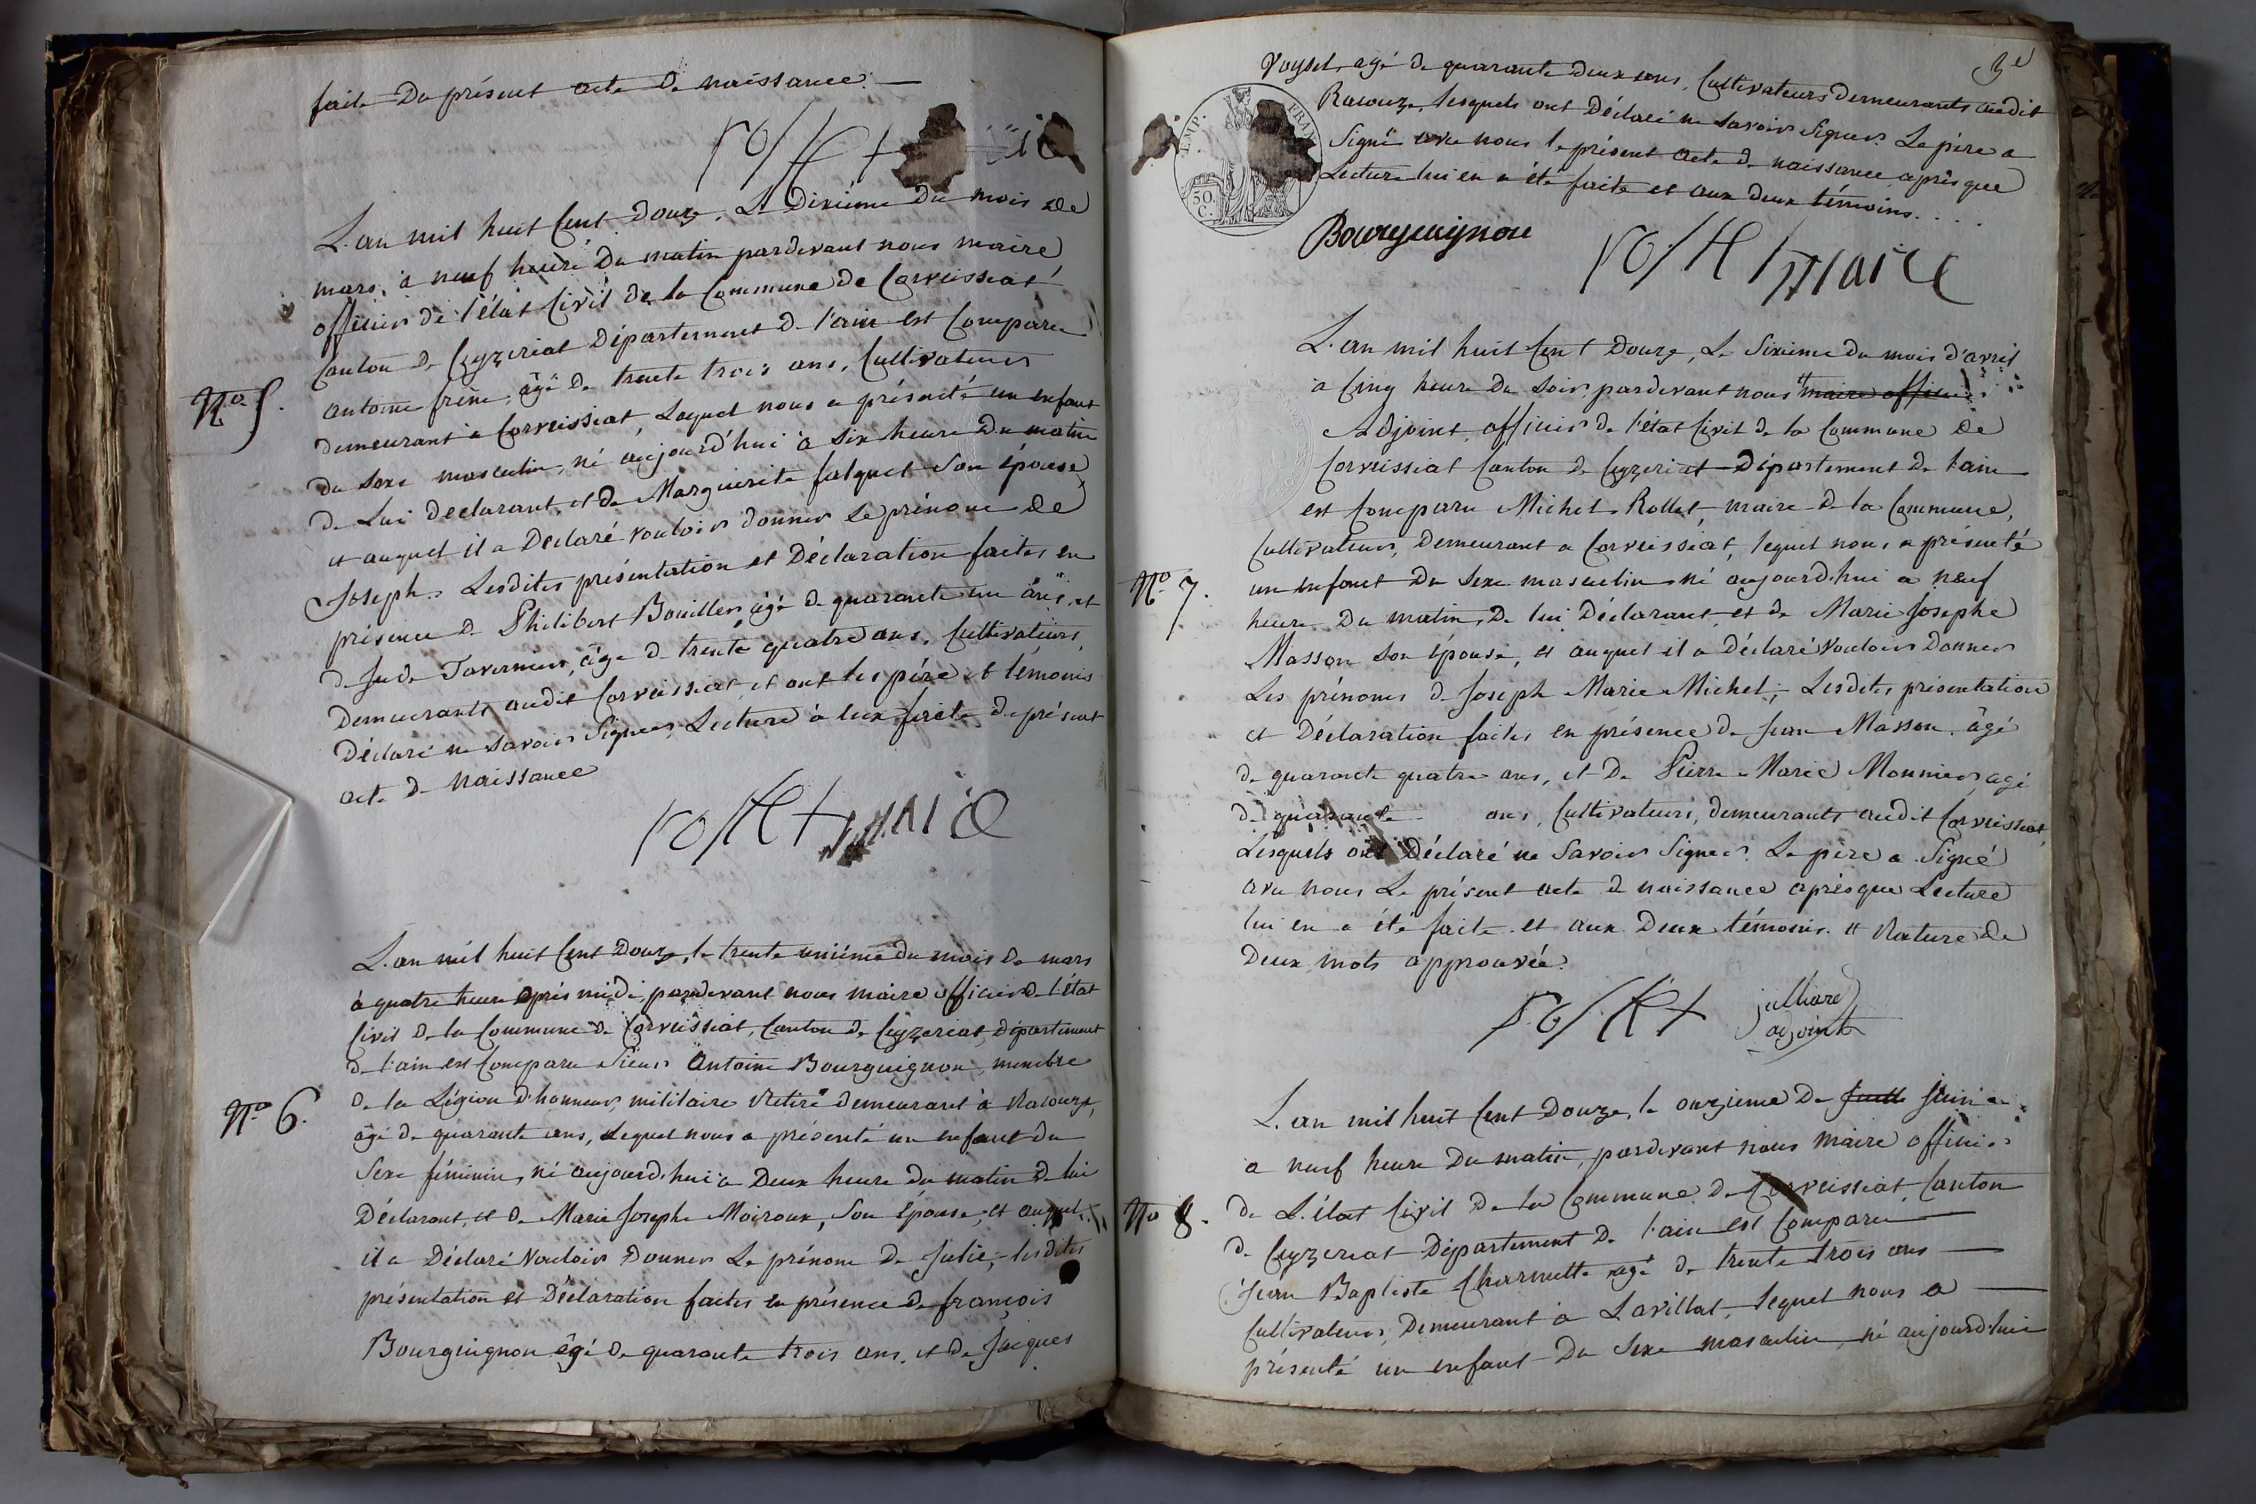 faite du présent acte de naissance.
L'an mil huit cent douze, le dixième du mois de
mars, à neuf heure du matin pardevant nous maire
officier de l'état civil de la commune de Corveissiat
canton de Ceyzeriat département de l'ain est comparu
antoine frène, âgé de trente trois ans, cultivateur
N.o 5.
demeurant à Corveissiat, Lequel nous a présenté un enfant
du sexe masculin, né aujourd'hui à six heure du matin
de lui déclarant, et de Marguerite falquet son épouse
et auquel il a déclaré vouloir donner le prénom de
Joseph. Lesdites présentation et déclaration faites en
présence de Philibert Bouiller âgé de quarante un ans, et
de Jude Tavernier, âgé de trente quatre ans, cultivateurs,
demeurants audit Corveissiat, et ont les père et témoins
déclaré ne savoir signer, Lecture à eux faite du présent
acte de naissance
rollet maire
L'an mil huit cent douze, le trente unième du mois de mars
à quatre heure après midi, pardevant nous maire officier de l'état
civil de la commune de Corveissiat, canton de Ceyzeriat, département
de l'ain est comparu sieur Antoine Bourguignon, membre
de la Légion d'honneur, militaire retiré demeurant à Racouze,
N.o 6.
âgé de quarante ans, Lequel nous a présenté un enfant du
sexe féminin, né aujourd'hui à deux heure du matin de lui
déclarant, et de Marie Josephe Moiroux, son épouse, et auquel
il a déclaré vouloir donner le prénom de Julie, lesdites
présentation et déclaration faites en présence de françois
Bourguignon âgé de quarante trois ans, et de Jacques
3e
Voysel, agé de quarante deux ans, cultivateurs demeurants audit
Racouze, lesquels ont déclaré ne savoir signer. Le père a
signé avec nous le présent acte de naissance après que
Lecture lui en a été faite et aux deux témoins. . . .
EMP. FRAN
50 C.
Bourguignon
rollet maire
L'an mil huit cent douze, le sixième du mois d'avril
a cinq heure du soir, pardevant nous # maire officier
Adjoint, officier de l'état civil de la commune de
Corveissiat canton de Ceyzeriat département de l'ain
est comparu Michel Rollet, maire de la commune,
cultivateur, demeurant a Corveissiat, lequel nous a présenté
N.o 7.
un enfant du sexe masculin né aujourd'hui a neuf
heure du matin, de lui déclarant, et de Marie Josephe
Masson son épouse, et auquel il a déclaré vouloir donner
Les prénoms de Joseph Marie Michel, Lesdites présentation
et déclaration faites en présence de Jean Masson, âgé
de quarante quatre ans, et de Pierre Marie Monnier agé
de quarante ans, cultivateurs, demeurants audit Corveissiat,
Lesquels ont déclaré ne savoir signer. Le père a signé
avec nous Le présent acte de naissance après que Lecture
lui en a été faite et aux deux témoins. # Rature de
deux mots approuvée.
rollet
julliard
adjoint
L'an mil huit cent douze, le onzième de juin
a neuf heure du matin, pardevant nous maire officier
de L'état civil de la commune de Corveissiat, canton
N.o 8.
de Ceyzeriat département de l'ain est comparu
Jean Baptiste Charnette agé de trente trois ans
cultivateur, demeurant à Lavillat, lequel nous a
présenté un enfant du sexe masculin, né aujourd'hui